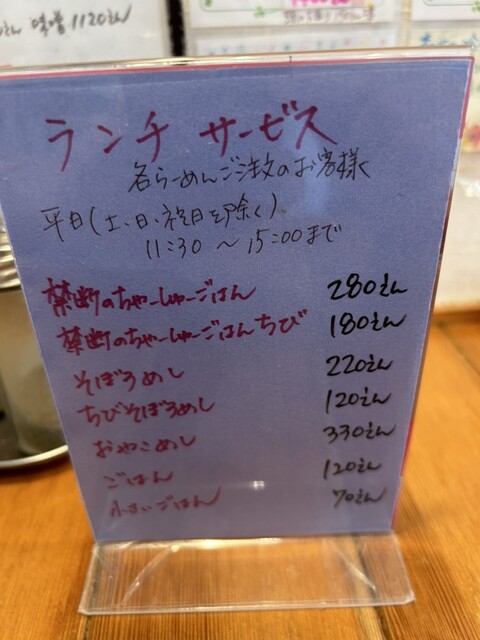 味噌 1120えん
ランチ サービス
各らーめんご注文のお客様
平日(土、日、祝日を除く)
11:30 〜 15:00まで
禁断のちゃーしゅーごはん 280えん
禁断のちゃーしゅーごはんちび 180えん
そぼろめし 220えん
ちびそぼろめし 120えん
おやこめし 330えん
ごはん 120えん
小さいごはん 70えん